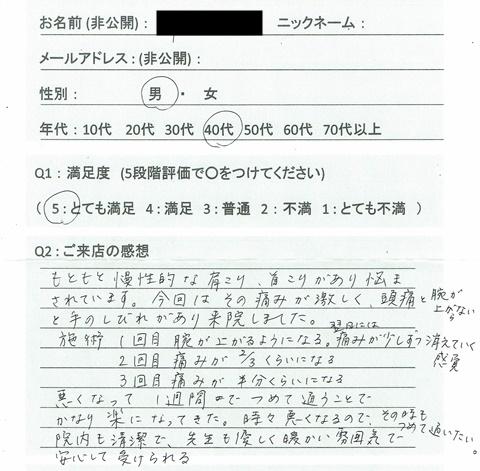 お名前(非公開)： ニックネーム：
メールアドレス：(非公開)：
性別： 男 ・ 女
年代：10代 20代 30代 40代 50代 60代 70代以上
Q1：満足度 (5段階評価で〇をつけてください)
( 5：とても満足 4：満足 3：普通 2：不満 1：とても不満 )
Q2：ご来店の感想
もともと慢性的な肩こり、首こりがあり悩ま
されています。今回はその痛みが激しく、頭痛と腕が上がない
と手のしびれがあり来院しました。
施術 1回目 腕が上がるようになる。翌日には痛みが少しずつ消えていく感覚
2回目 痛みが 2/3くらいになる
3回目 痛みが 半分くらいになる
悪くなって 1週間 でつめて通うことで
かなり楽になってきた。時々悪くなるので、その時もつめて通いたい。
院内も清潔で、先生も優しく暖かい雰囲気で
安心して受けられる